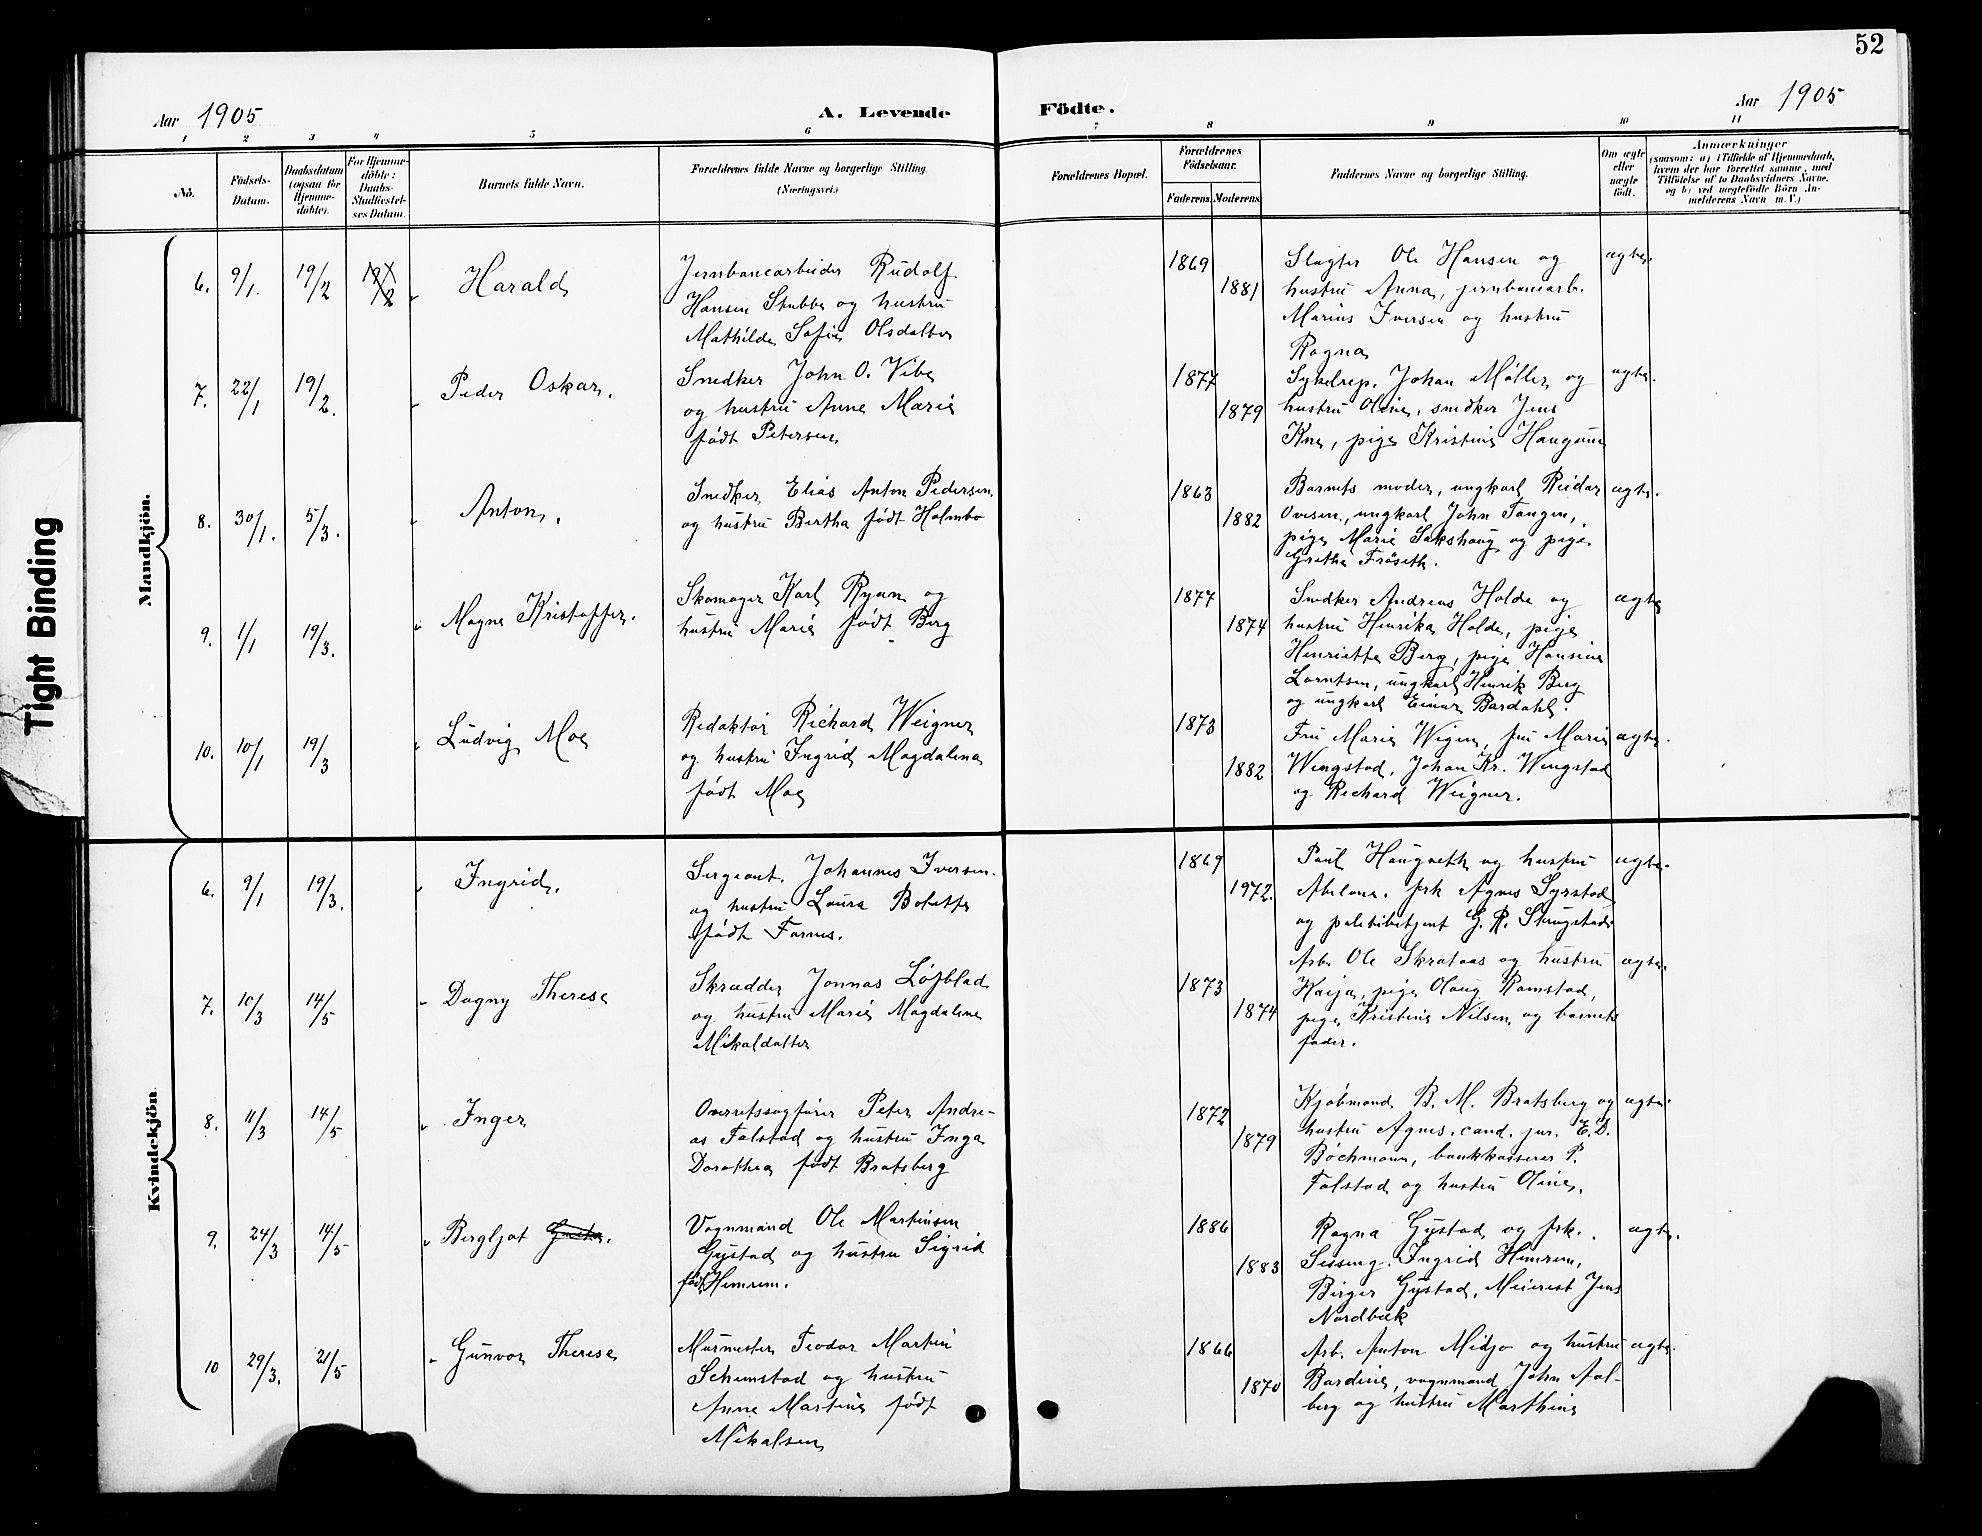 52
Aar 1905
A. Levende
Födte.
Aar 1905
1 2 3 4 5 6 7 8 9 10 11
No.
Födsels-
Datum.
Daabsdatum
(ogsaa for
Hjemme-
döbte).
For Hjemme-
döbte:
Daabs-
Stadfæstel-
ses Datum.
Barnets fulde Navn.
Forældrenes fulde Navne og borgerlige Stilling.
(Næringsvei.)
Forældrenes Bopæl.
Forældrenes
Födselsaar.
Faderens.
Moderens.
Faddernes Navne og borgerlige Stilling.
Om ægte
eller
uægte
født.
Anmærkninger
(saasom: a) i Tilfælde af Hjemmedaab,
hvem der har forrettet samme, med
Tilföielse af to Daabsvidners Navne,
og b) ved uægtefödte Börn An-
melderens Navn m. V.)
Mandkjön.
6. 9/1. 19/2 19/2 Harald
Jernbanearbeider Rudolf
Hansen Stubbe og hustru
Mathilde Sofie Olsdatter
1869
1881
Slagter Ole Hansen og
hustru Anna, jernbanearb.
Marius Iversen og hustru
Ragna
ægte.
7. 22/1 19/2. Peder Oskar.
Snedker John O. Vibe
og hustru Anne Marie
født Petersen
1877
1879
Johan Møller og
hustru Oline, snedker Jens
Kne, pige Kristine Haugum
ægte.
8. 30/1. 5/3. Anton.
Snedker Elias Anton Pedersen
og hustru Bertha født Holmbo
1863
1882
Barnets moder, ungkarl Reidar
Ovesen, ungkarl John Tangen,
pige Marie Sakshaug og pige
Grethe Frøseth.
ægte.
9. 1/1 19/3. Magne Kristoffer.
Skomager Karl Ryan og
hustru Marie født Berg
1877
1874
Snedker Andreas Holde og
hustru Henrika Holde, pige
Henriette Berg, pige Hansine
Lorntsen, ungkarl Henrik Berg
og ungkarl Einar Bardahl.
ægte
10. 10/1 19/3 Ludvig Moe
Redaktør Richard Weigner
og hustru Ingrid Magdalena
født Moe
1873
1882
Fru Marie Wigen, fru Marie
Wingstad, Johan Kr. Wingstad
og Richard Weigner.
ægte.
Kvindekjön
6. 9/1 19/3. Ingrid.
Sergeant Johannes Iversen
og hustru Laura Bolette
født Farnes.
1869
1972.
Paul Haugseth og hustru
Abelone, frk Agnes Syrstad
og politibetjent G. R. Skrugstad
ægte.
7. 10/3 14/5 Dagny Therese
Skrædder Jonnas Løfblad
og hustru Marie Magdalene
Mikaldatter
1873
1874
Arb. Ole Skrataas og hustru
Kaija, pige Olaug Ramstad,
pige Kristine Nilsen og barnets
fader.
ægte.
8. 11/3 14/5 Inger
Overretssagfører Peter Andre-
as Falstad og hustru Inga
Dorothea født Bratsberg
1872
1879
Kjøbmand B. M. Bratsberg og
hustru Agnes, cand. jur. E. D.
Bøchmann, bankkasserer P.
Falstad og hustru Oline.
ægte.
9. 24/3 14/5 Bergljot
Vognmand Ole Martinsen
Gystad og hustru Sigrid
født Hemrem.
1886
1883
Ragna Gystad og frk.
Sissing. Ingrid Hemrem,
Birger Gystad, Meierist Jens
Nordbæk
ægte.
10 29/3. 21/5 Gunvor Therese
Murmester Teodor Martin
Schemstad og hustru
Anne Martine født
Mikalsen
1866
1870
Arb. Anton Midjo og hustru
Bardine, vognmand John Aal-
berg og hustru Marthine
ægte.
Tight Binding